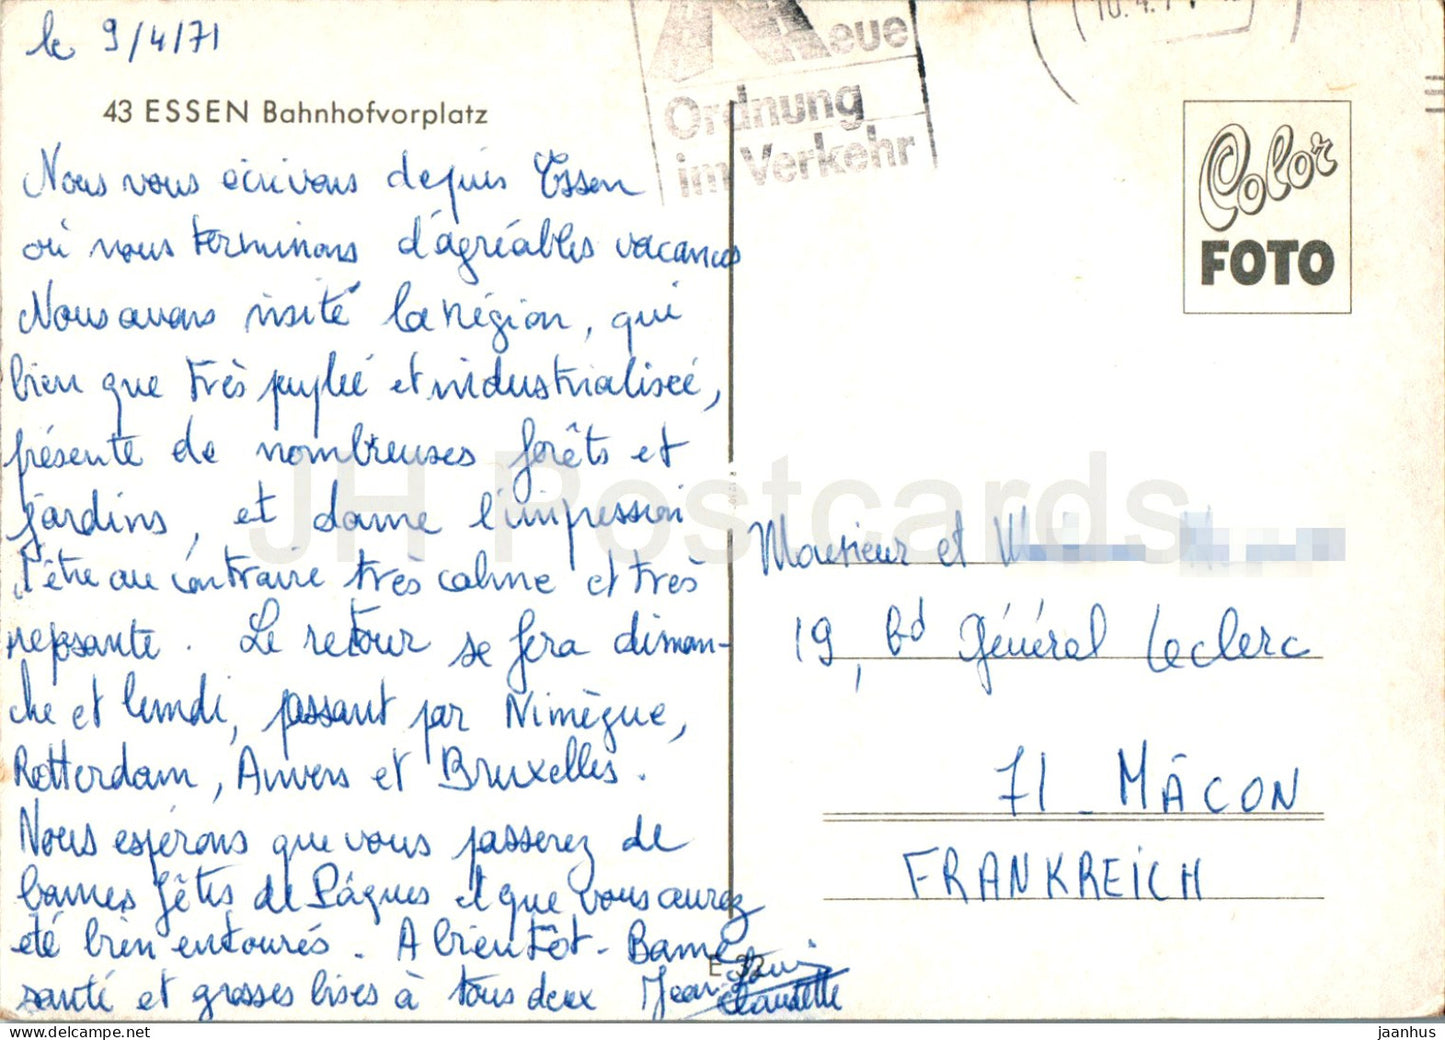 le 9/4/71
43 ESSEN Bahnhofvorplatz
Nous vous écrivons depuis Essen
où nous terminons d'agréables vacances
Nous avons visité la région, qui
bien que très peuplée et industrialisée,
présente de nombreuses forêts et
jardins, et donne l'impression
d'être au contraire très calme et très
reposante. Le retour se fera diman-
che et lundi, passant par Nimègue,
Rotterdam, Anvers et Bruxelles.
Nous espérons que vous passerez de
bonnes fêtes de Pâques et que vous aurez
été bien entourés. A bientôt - Bonne
santé et grosses bises à tous deux Jean
Claudette
E 32
Neue
Ordnung
im Verkehr
10.4.71
Color
FOTO
Monsieur et
19, bd Général Leclerc
71 - MÂCON
FRANKREICH
JH Postcards
www.delcampe.net
jaanhus